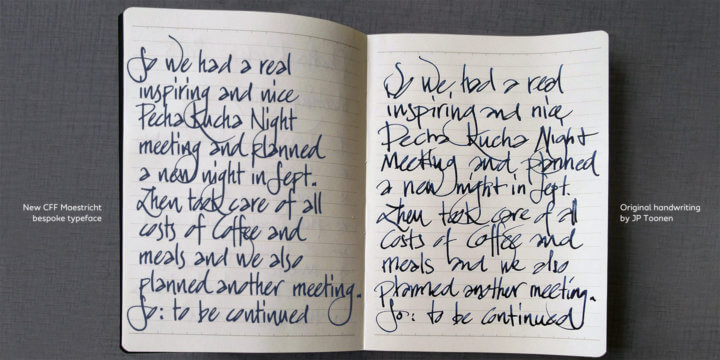 So we had a real
inspiring and nice
Pecha Kucha Night
meeting and planned
a new night in Sept.
Zhen took care of all
costs of Coffee and
meals and we also
planned another meeting.
So: to be continued
So we had a real
inspiring and nice
Pecha Kucha Night
Meeting and planned
a new night in Sept.
Zhen took care of all
costs of Coffee and
meals and we also
planned another meeting.
So: to be continued
New CFF Maestricht
bespoke typeface
Original handwriting
by JP Toonen